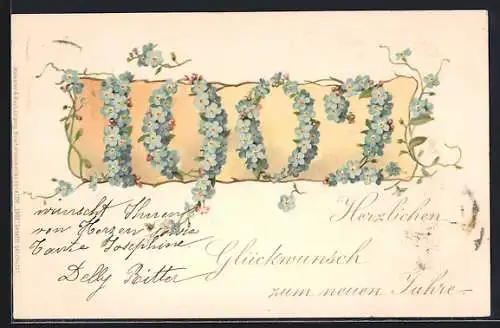 1907
Herzlichen
Glückwunsch
zum neuen Jahre
wünscht Ihnen
von Herzen
Tante Josephine
Delly Ritter